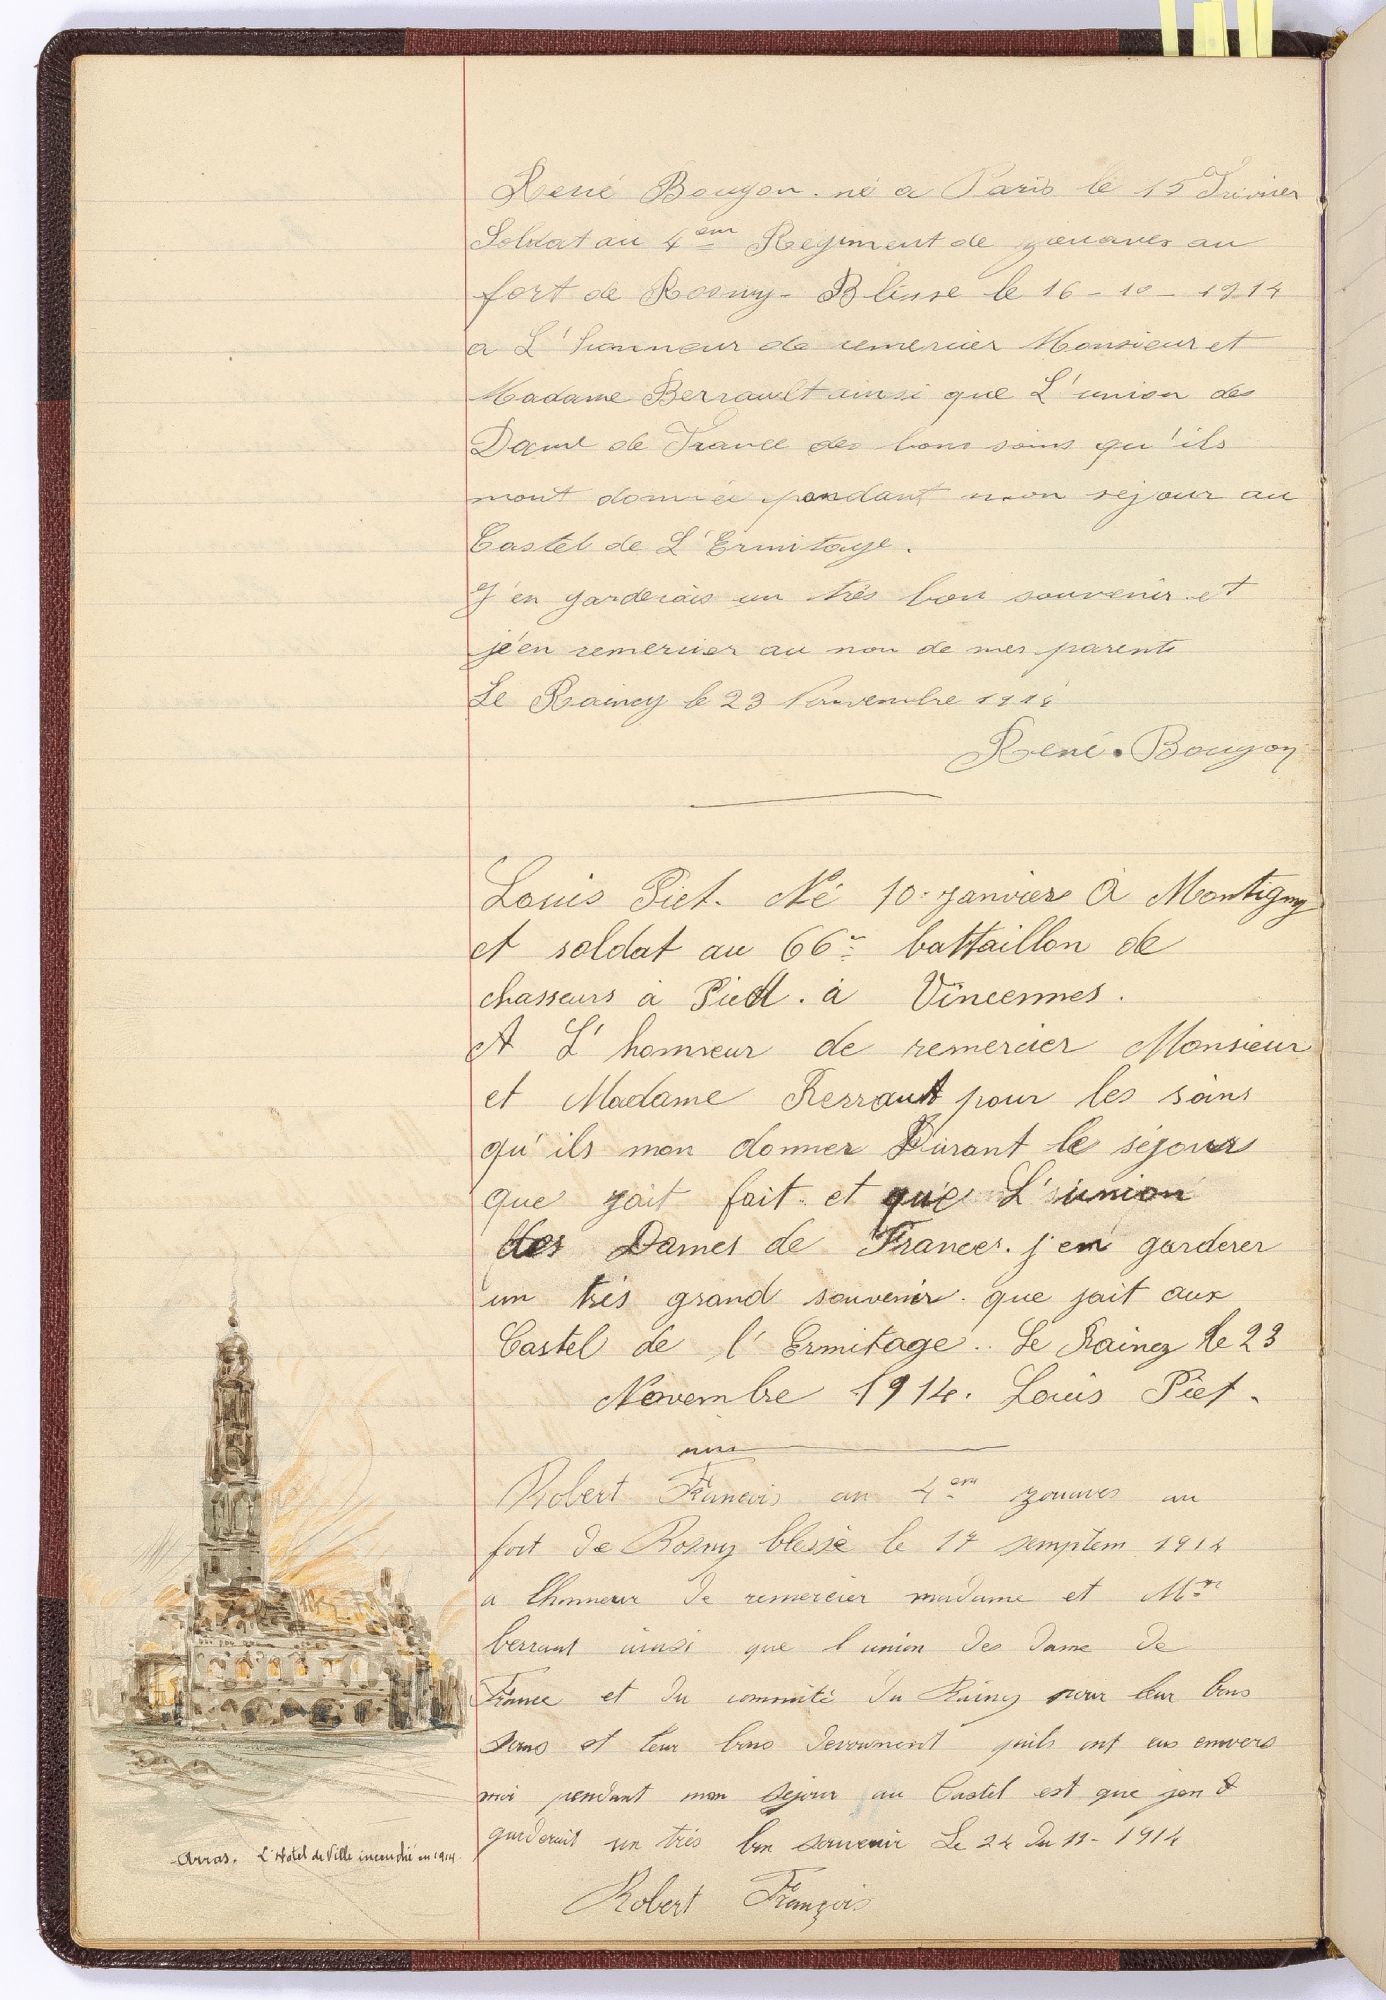 René Bougon. né a Paris le 15 Février
Soldat au 4 em Regiment de zouaves au
fort de Rosny. Blésse le 16-10-1914
a L'honneur de remercier Monsieur et
Madame Berrault ainsi que L'union des
Dame de France des bons soins qu'ils
mont donnée pendant mon séjour au
Castel de L'Ermitage.
J'en garderais un très bon souvenir et
jéen remercier au non de mes parents
Le Raincy le 23 Nouvembre 1914
René. Bougon
Louis Piet. Né 10 janvier A Montigny
et soldat au 66e battaillon de
chasseurs à Pied. à Vincennes.
A L'honneur de remercier Monsieur
et Madame Berraut pour les soins
qu'ils mon donner Durant le séjour
que jait fait et que L'union
des Dames de Frances. j'en garderer
un très grand souvenir. que jait aux
Castel de l'Ermitage. Le Rainez le 23
Novembre 1914. Louis Piet.
Robert Francois au 4 em zouaves au
fort de Rosny blessé le 17 semptem 1914
a lhonneur de remercier madame et Mr
berraut ainsi que l'union des dame de
France et du commité du Rainçy pour leur bons
soins et leur bons devoument quils ont eus envers
moi pendant mon séjour au Castel est que jen
garderait un très bon souvenir Le 24 du 11-1914
Robert François
Arras. L'Hotel de Ville incendié en 1914